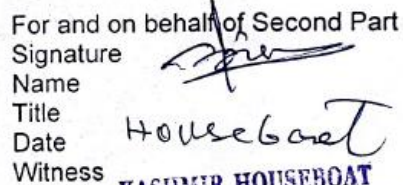 For and on behalf of Second Part
Signature
Name
Title
Date Houseboat
Witness KASHMIR HOUSEBOAT